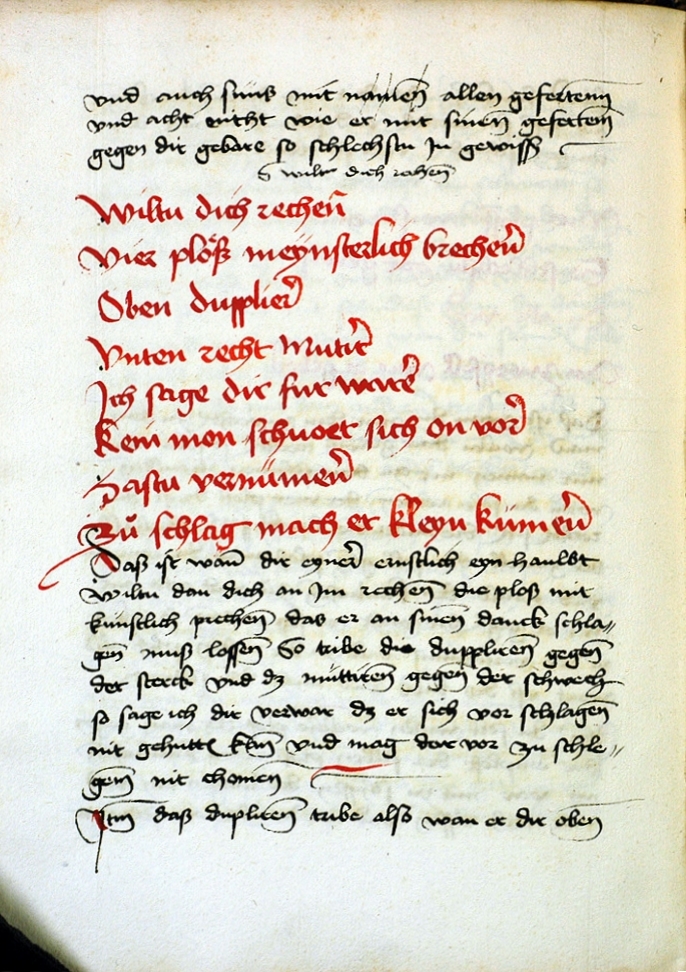 vnd auch sünst mit namen allen gefertenn
vnd acht nitht wie er mit sinen geferten
gegen dir gebare so schlechstu In gewiss
S wiltu dich rechen
Wiltu dich rechen
vier ploß meynsterlich brechen
Oben duplier
Vnten recht mutir
Ich sage dir fur ware
kein mon schuoet sich on vor
Hastu vernümen
Zů schlag mach er kleyn kümen
Daß ist wan dir eyner ernstlich eyn haubt
wiltu dan dich an Im rechen die ploß mit
künstlich prechen das er an sinen danck schla„
gen muß lossen So tribe die duppliren gegen
der sterck vnd dz muttiren gegen der schwech
so sage ich dir verwar dz er sich vor schlagen
nit gehutten kan vnd mag dar vor zu schle„
gen nit chomen
Item daß dupliren tribe also wan er dir oben